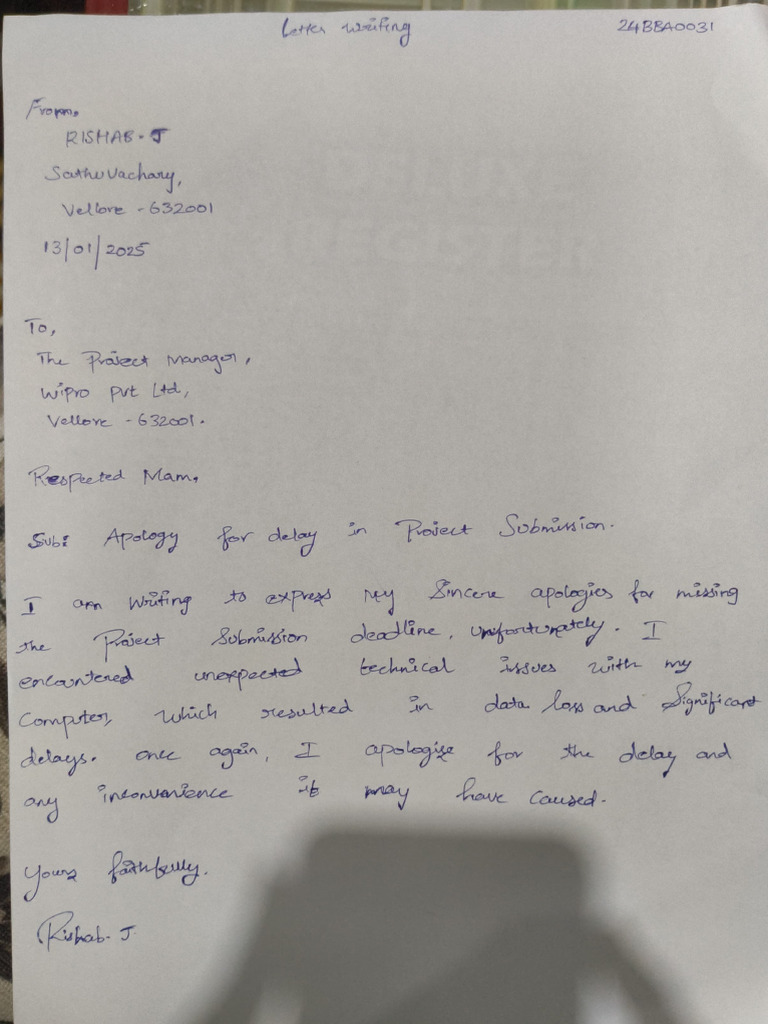 Letter Writing 24BBA0031
From,
RISHAB. J
Sathuvachary,
Vellore - 632001
13/01/2025
To,
The Project Manager,
Wipro Pvt Ltd,
Vellore - 632001.
Respected Mam,
Sub: Apology for delay in Project Submission.
I am writing to express my Sincere apologies for missing
the Project Submission deadline, unfortunately. I
encountered unexpected technical issues with my
Computer, which resulted in data loss and Significant
delays. once again, I apologize for the delay and
any inconvenience it may have caused.
yours faithfully.
Rishab. J